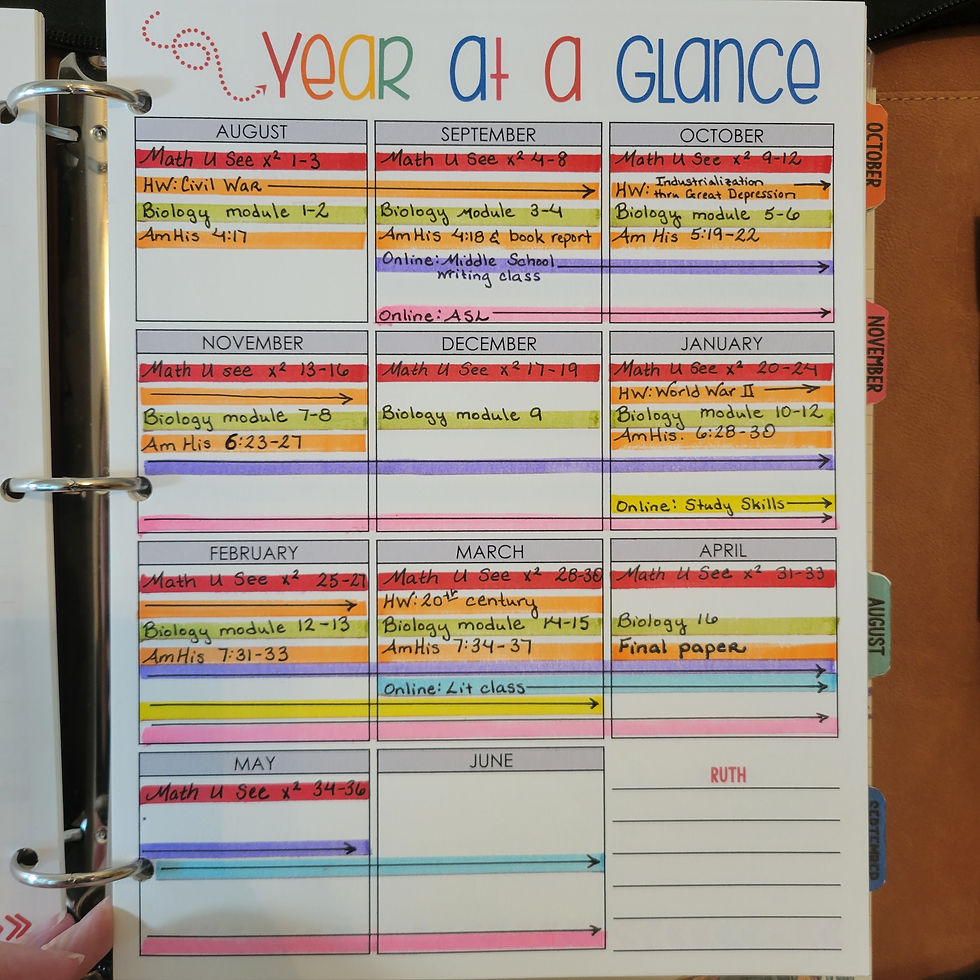 YEAR at a GLANCE
AUGUST
Math U See x² 1-3
HW: Civil War
Biology module 1-2
AmHis 4:17
SEPTEMBER
Math U See x² 4-8
Biology module 3-4
AmHis 4:18 & book report
Online: Middle School
writing class
Online: ASL
OCTOBER
Math U See x² 9-12
HW: Industrialization
thru Great Depression
Biology module 5-6
Am His 5:19-22
NOVEMBER
Math U see x² 13-16
Biology module 7-8
Am His 6:23-27
DECEMBER
Math U See x² 17-19
Biology module 9
JANUARY
Math U See x² 20-24
HW: World War II
Biology module 10-12
AmHis. 6:28-30
Online: Study Skills
FEBRUARY
Math U See x² 25-27
Biology module 12-13
AmHis 7:31-33
MARCH
Math U See x² 28-30
HW: 20th century
Biology module 14-15
AmHis 7:34-37
Online: Lit class
APRIL
Math U See x² 31-33
Biology 16
Final paper
MAY
Math U See x² 34-36
JUNE
RUTH
OCTOBER
NOVEMBER
AUGUST
SEPTEMBER